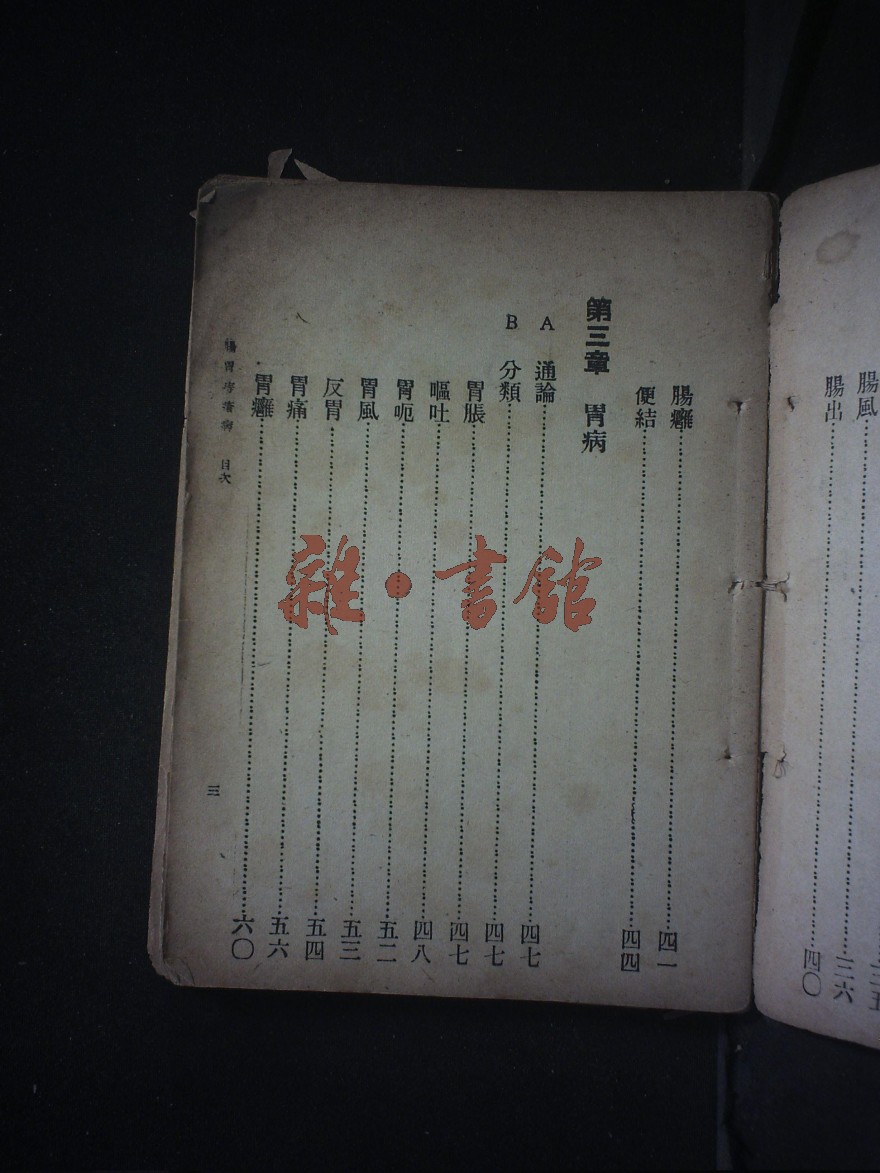 腸風……三六
腸出……四〇
腸癰……四一
便結……四四
第三章 胃病
A 通論……四七
B 分類……四七
胃脹……四七
嘔吐……四八
胃呃……五二
胃風……五三
反胃……五四
胃痛……五六
胃癰……六〇
腸胃 目次
三
雜·書館